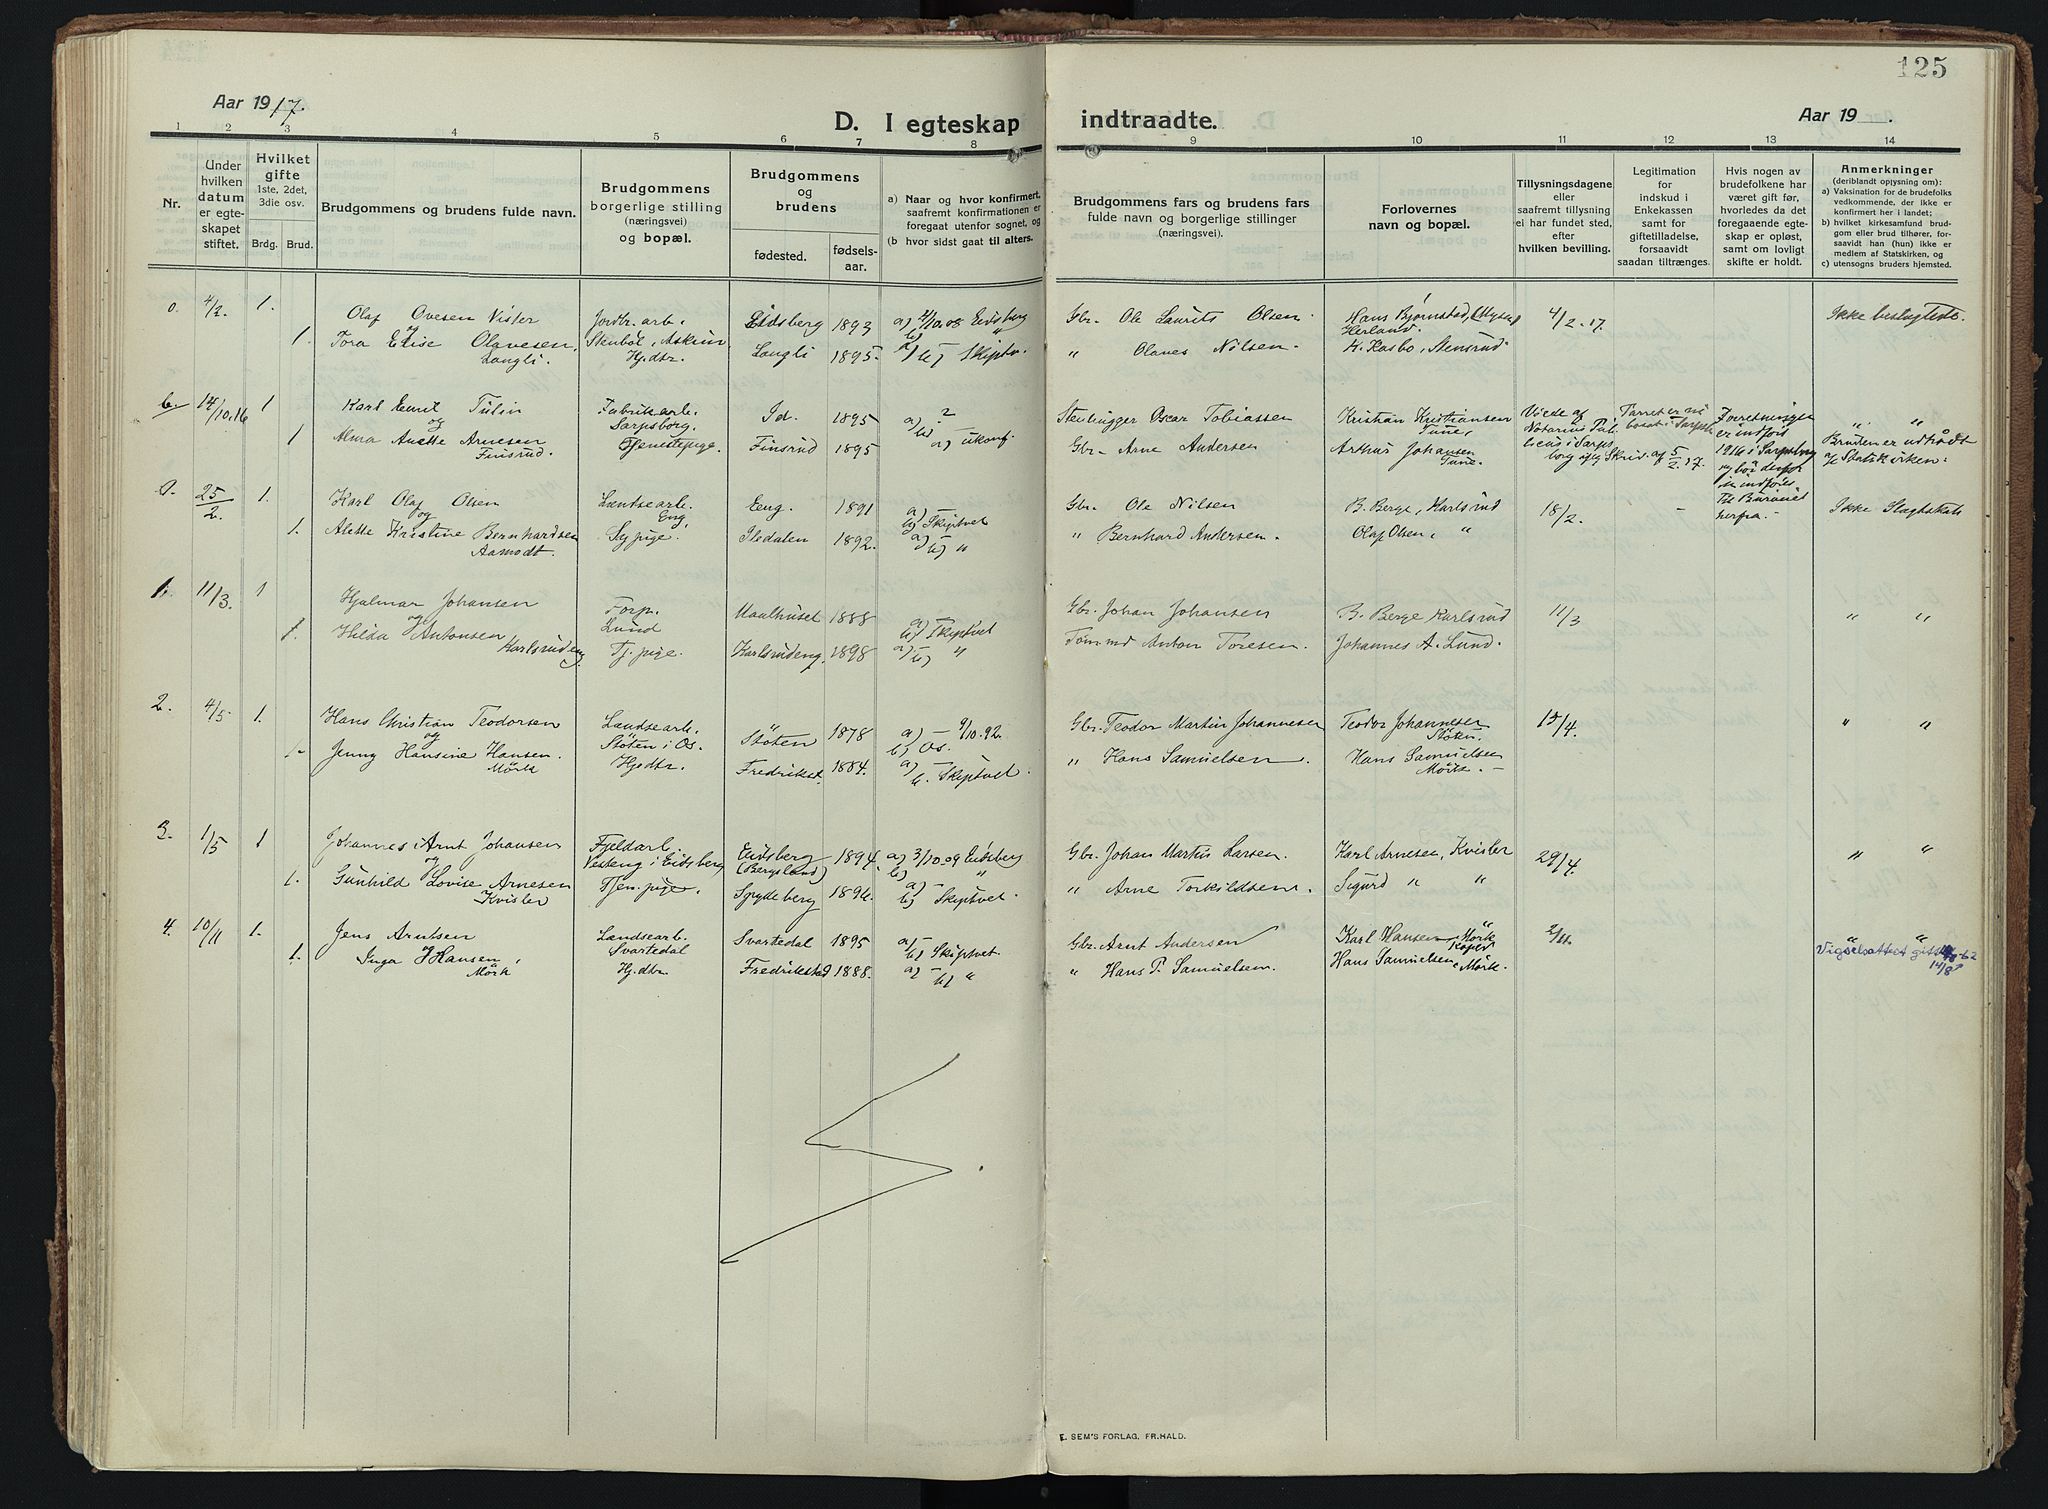 125
Aar 1917.
D. I egteskap indtraadte.
Aar 19 .
1 2 3 4 5 6 7 8 9 10 11 12 13 14
Nr.
Under hvilken datum er egteskapet stiftet.
Hvilket gifte 1ste, 2det, 3die osv.
Brdg. Brud.
Brudgommens og brudens fulde navn.
Brudgommens borgerlige stilling (næringsvei) og bopæl.
Brudgommens og brudens
fødested. fødselsaar.
a) Naar og hvor konfirmert, saafremt konfirmationen er foregaat utenfor sognet, og
(b hvor sidst gaat til alters.
Brudgommens fars og brudens fars fulde navn og borgerlige stillinger (næringsvei).
Forlovernes navn og bopæl.
Tillysningsdagene eller saafremt tillysning ei har fundet sted, efter hvilken bevilling.
Legitimation for indskud i Enkekassen samt for giftetilladelse, forsaavidt saadan tiltrænges.
Hvis nogen av brudefolkene har været gift før, hvorledes da det foregaaende egteskap er opløst, samt om lovligt skifte er holdt.
Anmerkninger (deriblandt opjysning om):
a) Vaksination for de brudefolks vedkommende, der ikke er konfirmert her i landet;
b) hvilket kirkesamfund brudgom eller brud tilhører, forsaavidt han (hun) ikke er medlem af Statskirken, og
c) utensogns bruders hjemsted.
0. 4/2. 1. Olaf Ovesen Vister Jordbr.arb. Eidsberg 1893 a) 4/10.08 Eidsberg Gbr. Ole Laurits Olsen. Hans Bjørnstad, Herland. 4/2.17. Ikke beslegtede.
og
1. Tora Elise Olavesen, Langli. Stenbøl, Askim Hj.dtr. Langli 1895. a) b) Skiptv. " Olaves Nilsen. K. Kasbo, Stensrud.
14/10.16 1 Karl Emil Tulin Fabrikarb. Sarpsborg. Id. 1895 a) ? b) Stenhugger Oscar Tobiassen Kristian Kristiansen Tune, Viede af Notarius Publicus i Sarpsborg Skriv. af 5/2.17. " "
og
1 Alma Anette Arnesen Finsrud. Tjenestepige. Finsrud 1895 a) ukonf. Gbr. Arne Andersen Arthur Johansen Tune. Bruden er udtrådt af Statskirken.
25/2. 1. Karl Olaf Olsen Landsearb. Eng, Eng. 1891 a) – b) Skiptvet Gbr. Ole Nilsen B. Berge, Karlsrud 18/2. - herfra.- Ikke Slegtskab
og
1. Alette Kristine Bernhardsen Aamodt. Sypige. Iledalen 1892. a) – b) " " Bernhard Andersen. Olaf Olsen, "
1. 11/3. 1 Hjalmar Johansen Forp. Lund Maalhuset 1888 a) – b) Skiptvet Gbr. Johan Johansen B. Berge Karlsrud 11/3 " "
og
1. Hilda Antonsen Karlsrudeng. Tj.pige. Karlsrudeng. 1898 a) – b) " Tøm.md Anton Toresen. Johannes A. Lund.
2. 4/5. 1. Hans Christian Teodorsen Landsearb. Støten i Os. Støten 1878 a) – 9/10.92. b) Os. Gbr. Teodor Martin Johannesen Teodor Johannesen Støten. 15/4. " "
og
1. Jenny Hansine Hansen. Mørk Hj.dtr. Fredrikst. 1884. a) – b. Skiptvet. " Hans Samuelsen. Hans Samuelsen Mørk.
3. 1/5 1 Johannes Arnt Johansen Fjeldarb. Vesteng i Eidsberg Eidsberg (Bergsland) 1894. a) 3/10.09 Eidsberg b) " Gbr. Johan Martin Larsen. Karl Arnesen, Kvisler 29/4. " "
og
1. Gunhild Lovise Arnesen Kvisler Tjen.pige. Spydeberg 1896. a) – b) Skiptvet. " Arne Torkildsen. Sigurd " "
4. 10/11 1. Jens Arntsen Landsearb. Svartedal Svartedal 1895 a) – b) Skiptvet. Gbr. Arnt Andersen Karl Hansen Mørk 2/11. " "
og
1. Inga Hansen, Mørk Hj.dtr. Fredrikstad 1888. a) – b) " " Hans P. Samuelsen. Hans Samuelsen, Mørk. Vigselsattest 14/8
E. SEM'S FORLAG, FR.HALD.